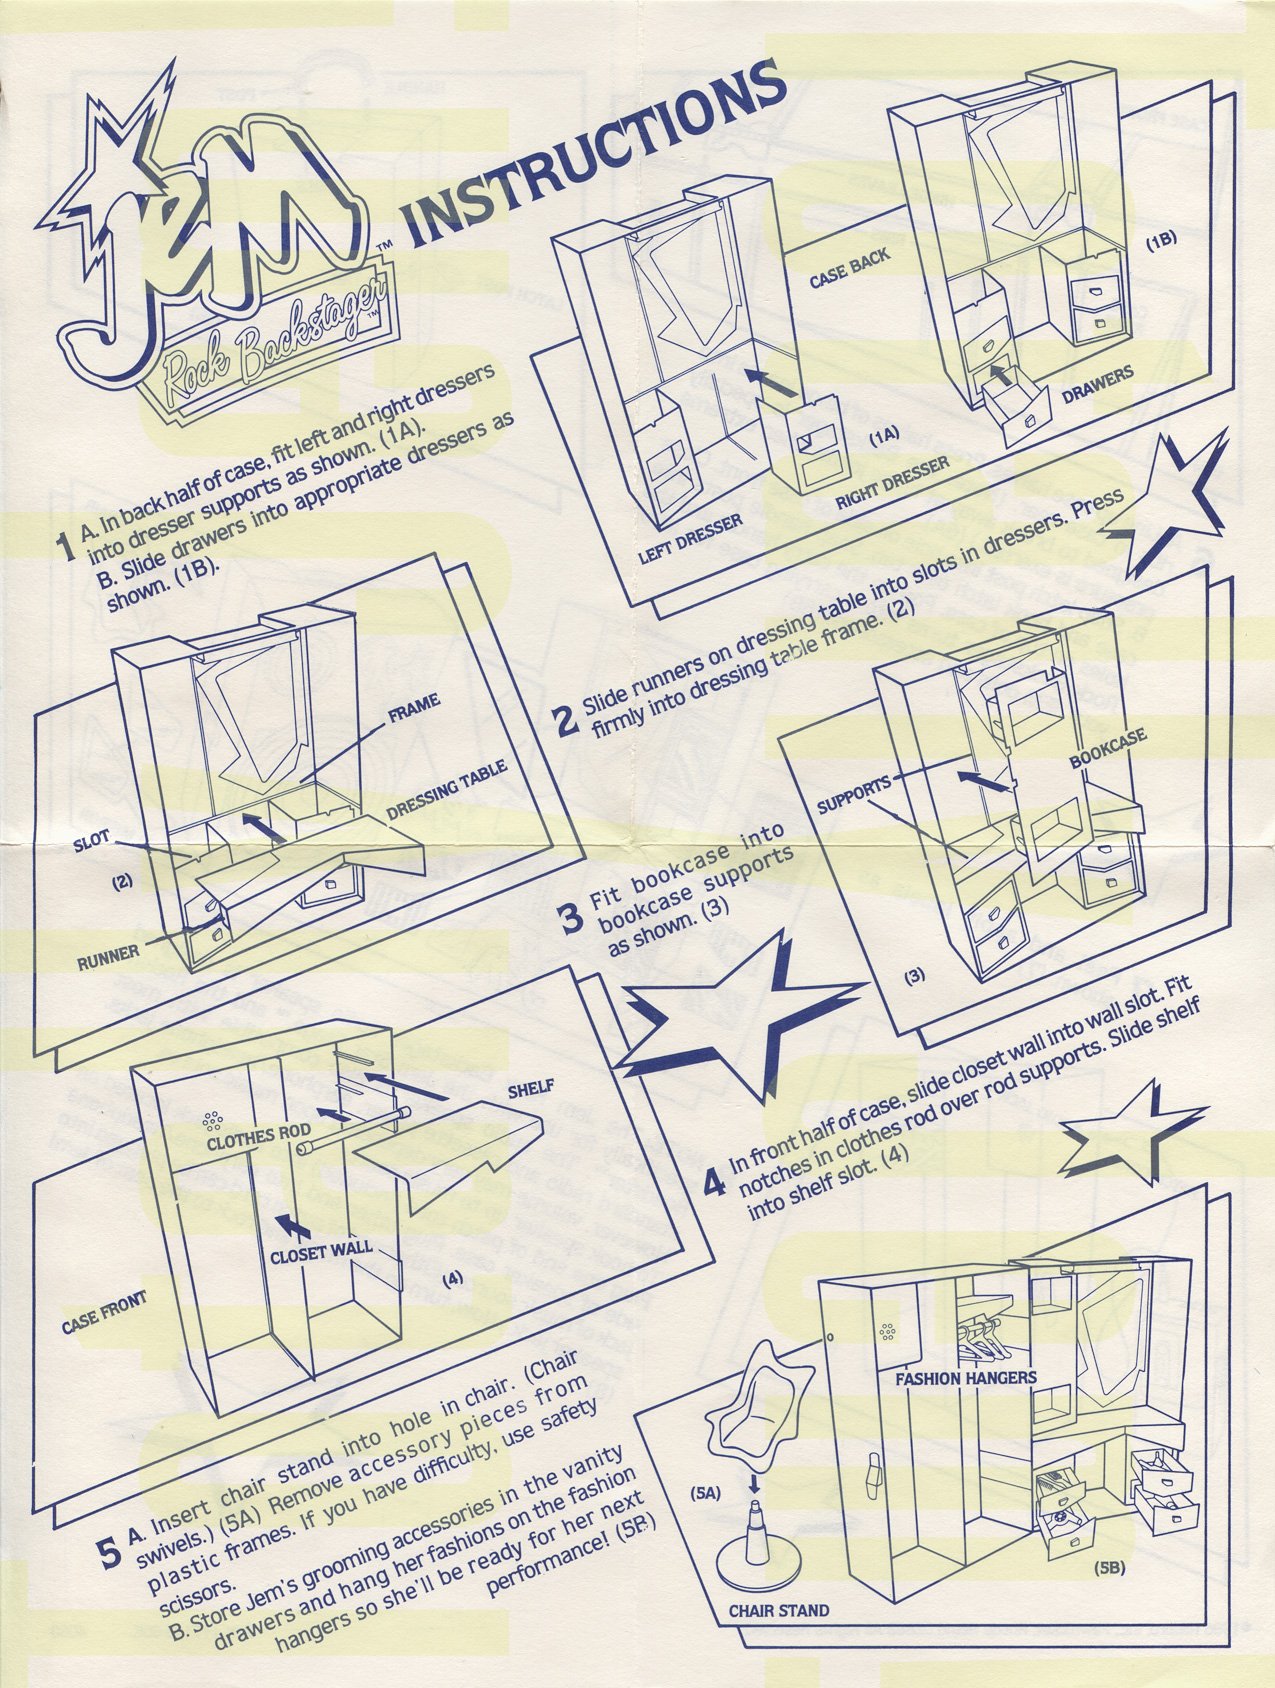 jem ™
Rock Backstager ™
INSTRUCTIONS
1 A. In back half of case, fit left and right dressers
into dresser supports as shown. (1A).
B. Slide drawers into appropriate dressers as
shown. (1B).
CASE BACK
(1B)
DRAWERS
(1A)
RIGHT DRESSER
LEFT DRESSER
2 Slide runners on dressing table into slots in dressers. Press
firmly into dressing table frame. (2)
FRAME
DRESSING TABLE
SLOT
(2)
RUNNER
3 Fit bookcase into
bookcase supports
as shown. (3)
BOOKCASE
SUPPORTS
(3)
4 In front half of case, slide closet wall into wall slot. Fit
notches in clothes rod over rod supports. Slide shelf
into shelf slot. (4)
SHELF
CLOTHES ROD
CLOSET WALL
(4)
CASE FRONT
5 A. Insert chair stand into hole in chair. (Chair
swivels.) (5A) Remove accessory pieces from
plastic frames. If you have difficulty, use safety
scissors.
B. Store Jem's grooming accessories in the vanity
drawers and hang her fashions on the fashion
hangers so she'll be ready for her next
performance! (5B)
FASHION HANGERS
(5A)
(5B)
CHAIR STAND